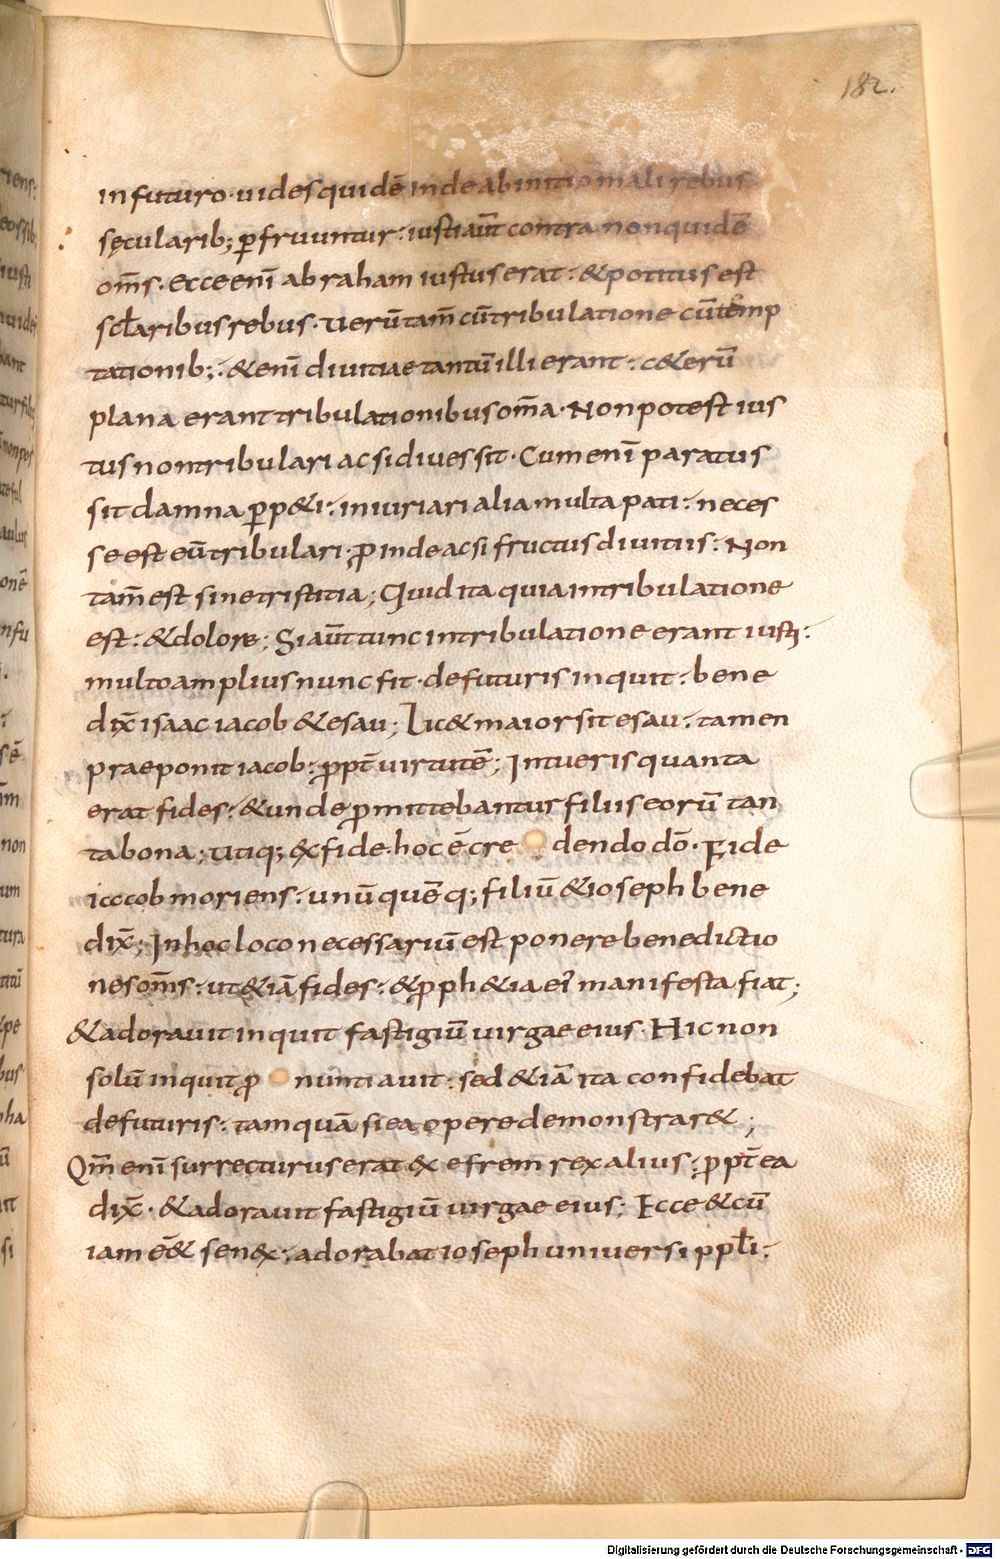 182.
in futuro· uides quidē inde ab initio mali rebus
sęcularib; ꝑfruuntur: iusti aūt contra non quidē
om̄s· Ecce enī abraham iustus erat: & potitus est
scl̄aribus rebus· Verūtam̄ cū tribulatione cū temp
tationib;: & enī diuitiae tantū illi erant: c&erū
plana erant tribulationibus om̄a· Non potest ius
tus non tribulari ac si diues sit· Cum enī paratus
sit damna ꝑp&i: iniuriari alia multa pati: neces
se est eū tribulari: ꝓinde ac si fructus diuitiis: Non
tam̄ est sine tristitia; Quid ita quia in tribulatione
est: & dolore; Si aūt tunc in tribulatione erant iusti:
multo amplius nunc fit· de futuris inquit: bene
dix̄ isaac iacob & esau; Lic& maior sit esau: tamen
praeponit iacob: ꝓpt̄ uirtutē; Intueris quanta
erat fides: & unde ꝓmittebantur filiis eorū tan
ta bona; Utiq; ex fide· hoc ē cre dendo dō· Fide
iacob moriens: unū quēq; filiū & ioseph bene
dix̄; In hoc loco necessariū est ponere benedictio
nes om̄s: ut &iā fides: & ꝓph&ia ei' manifesta fiat;
& adorauit inquit fastigiū uirgae eius· Hic non
solū inquit ꝓ nuntiauit: sed &iā ita confidebat
de futuris: tamquā si ea opere demonstrar&;
Qm̄ enī surrecturus erat ex efrem rex alius: ꝓpt̄ ea
dix̄· & adorauit fastigiū uirgae eius; Ecce & cū
iam ēē& senex: adorabat ioseph uniuersi ppl̄i:
Digitalisierung gefördert durch die Deutsche Forschungsgemeinschaft - DFG